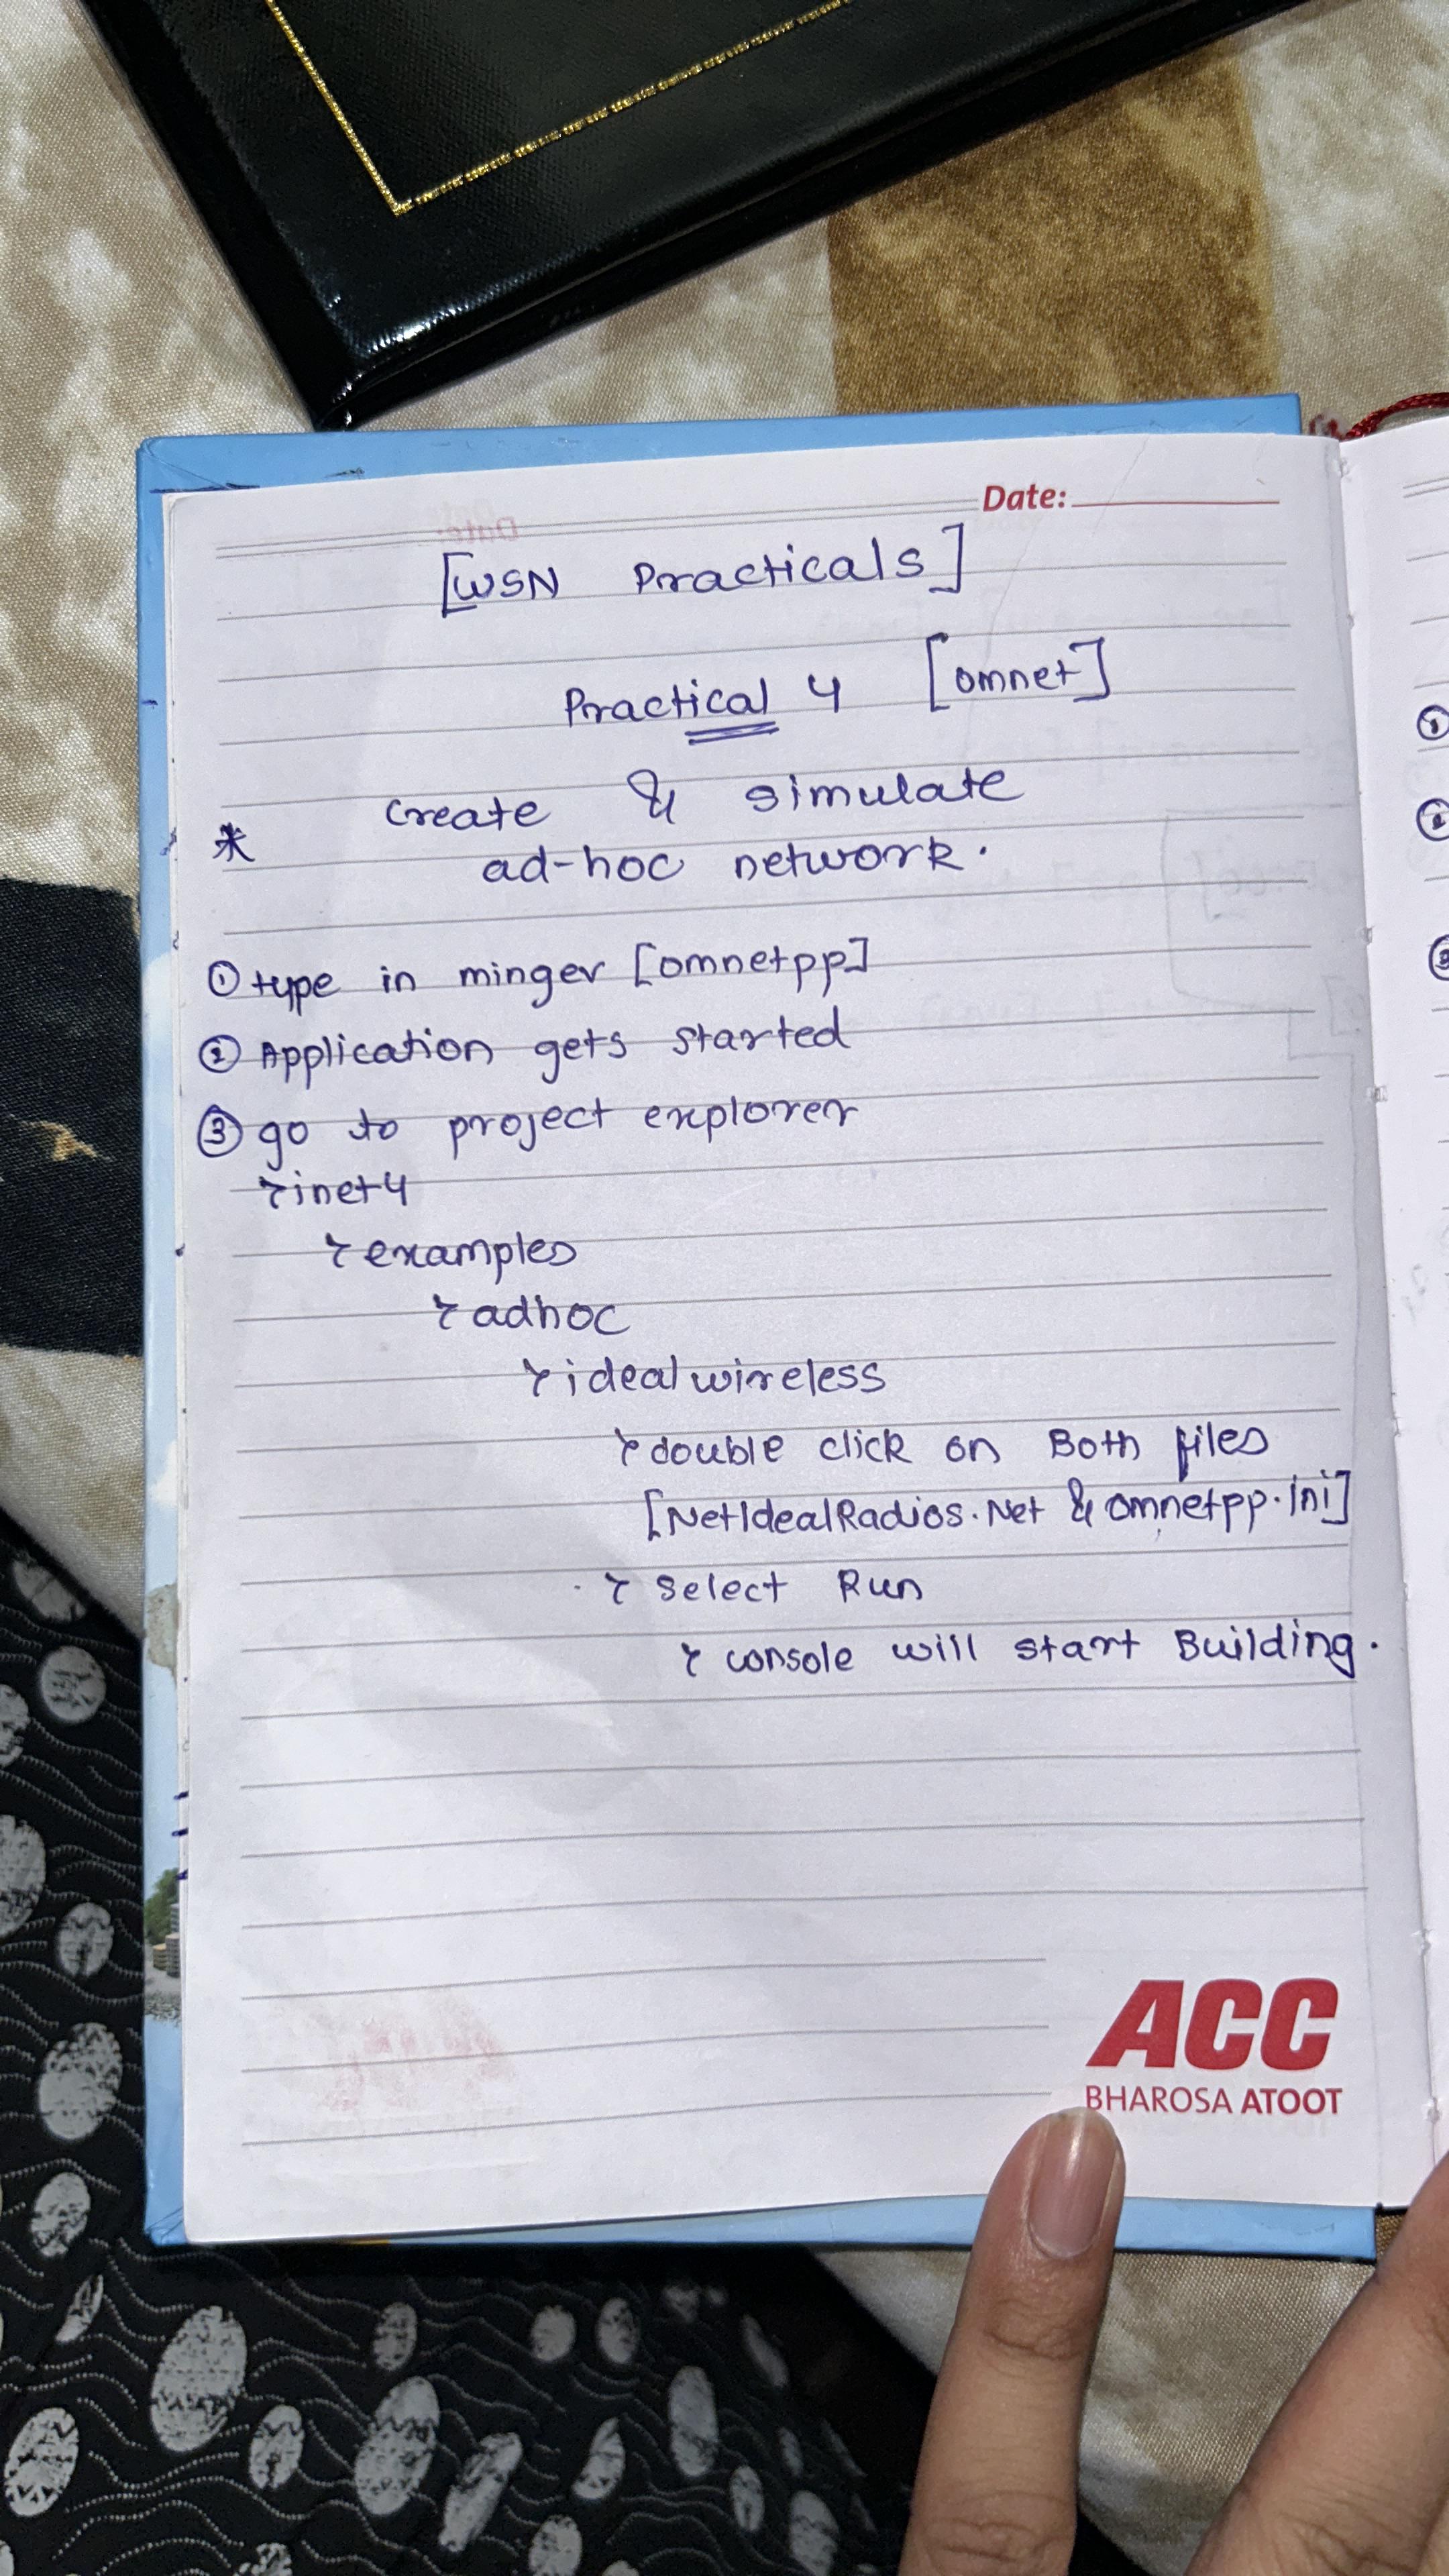 Date:
[WSN Practicals]
Practical 4 [omnet]
* create & simulate
ad-hoc network.
① type in minger [omnetpp]
② Application gets started
③ go to project explorer
> inet4
> examples
> adhoc
> idealwireless
> double click on Both files
[NetIdealRadios.Net & omnetpp.ini]
> select Run
> console will start Building.
ACC
BHAROSA ATOOT